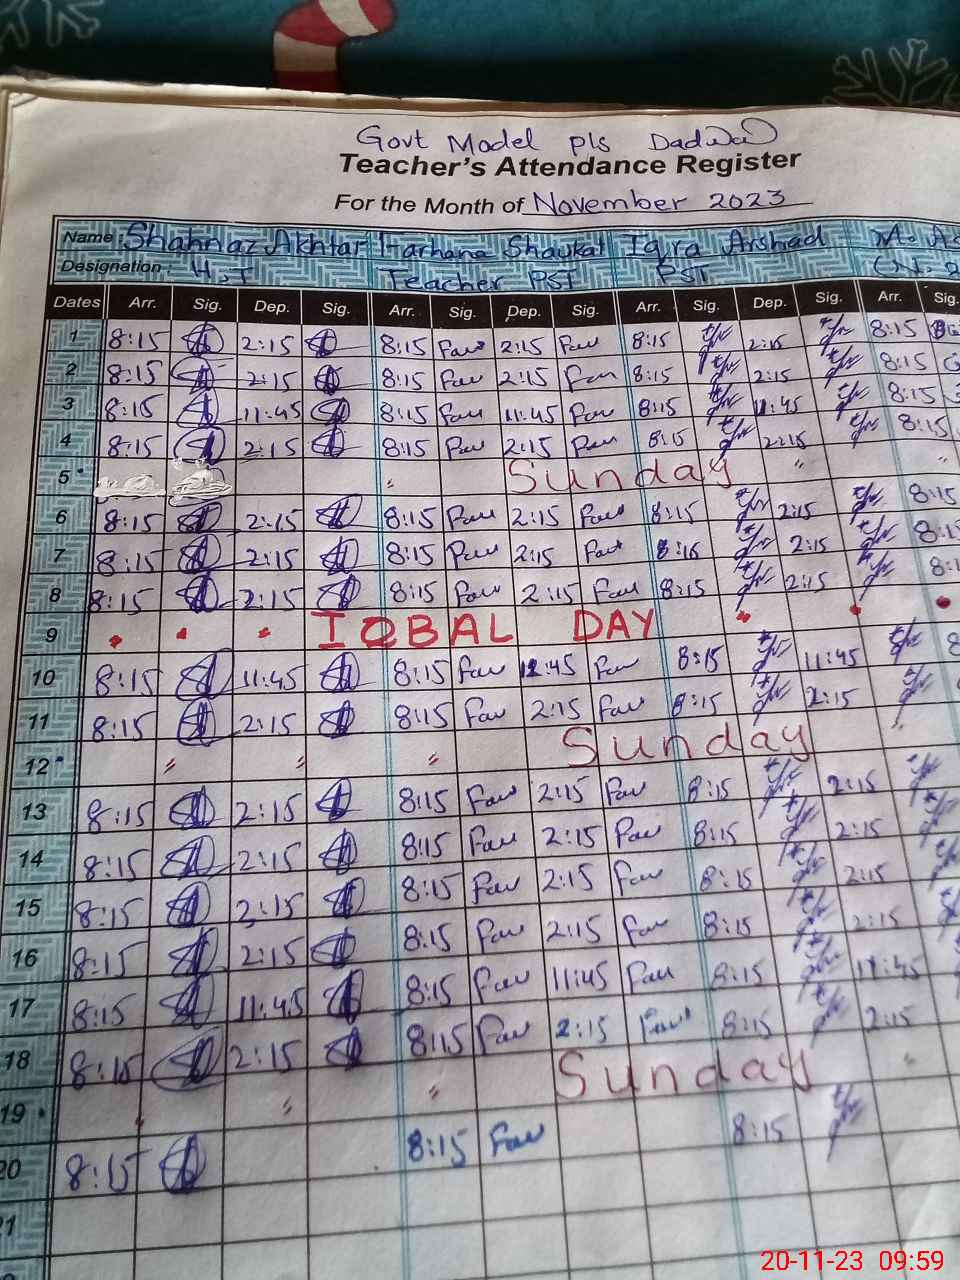 Govt Model pls Dadwal
Teacher's Attendance Register
For the Month of November 2023
Name Shahnaz Akhtar Farhana Shaukat Iqra Arshad M. As
Designation: H.T Teacher PST PST
Dates Arr. Sig. Dep. Sig. Arr. Sig. Dep. Sig. Arr. Sig. Dep. Sig. Arr. Sig.
1 8:15 2:15 8:15 Far 2:15 Far 8:15 2:15 8:15
2 8:15 2:15 8:15 Far 2:15 Far 8:15 2:15 8:15
3 8:15 11:45 8:15 Far 11:45 Far 8:15 11:45 8:15
4 8:15 2:15 8:15 Far 2:15 Far 8:15 2:15 8:15
5 " Sunday " "
6 8:15 2:15 8:15 Far 2:15 Far 8:15 2:15 8:15
7 8:15 2:15 8:15 Far 2:15 Far 8:15 2:15 8:15
8 8:15 2:15 8:15 Far 2:15 Far 8:15 2:15 8:1
9 IQBAL DAY
10 8:15 11:45 8:15 Far 11:45 Far 8:15 11:45 8
11 8:15 2:15 8:15 Far 2:15 Far 8:15 2:15
12 " " " Sunday "
13 8:15 2:15 8:15 Far 2:15 Far 8:15 2:15
14 8:15 2:15 8:15 Far 2:15 Far 8:15 2:15
15 8:15 2:15 8:15 Far 2:15 Far 8:15 2:15
16 8:15 2:15 8:15 Far 2:15 Far 8:15 2:15
17 8:15 11:45 8:15 Far 11:45 Far 8:15 11:45
18 8:15 2:15 8:15 Far 2:15 Far 8:15 2:15
19 " " " Sunday "
20 8:15 8:15 Far 8:15
21
20-11-23 09:59